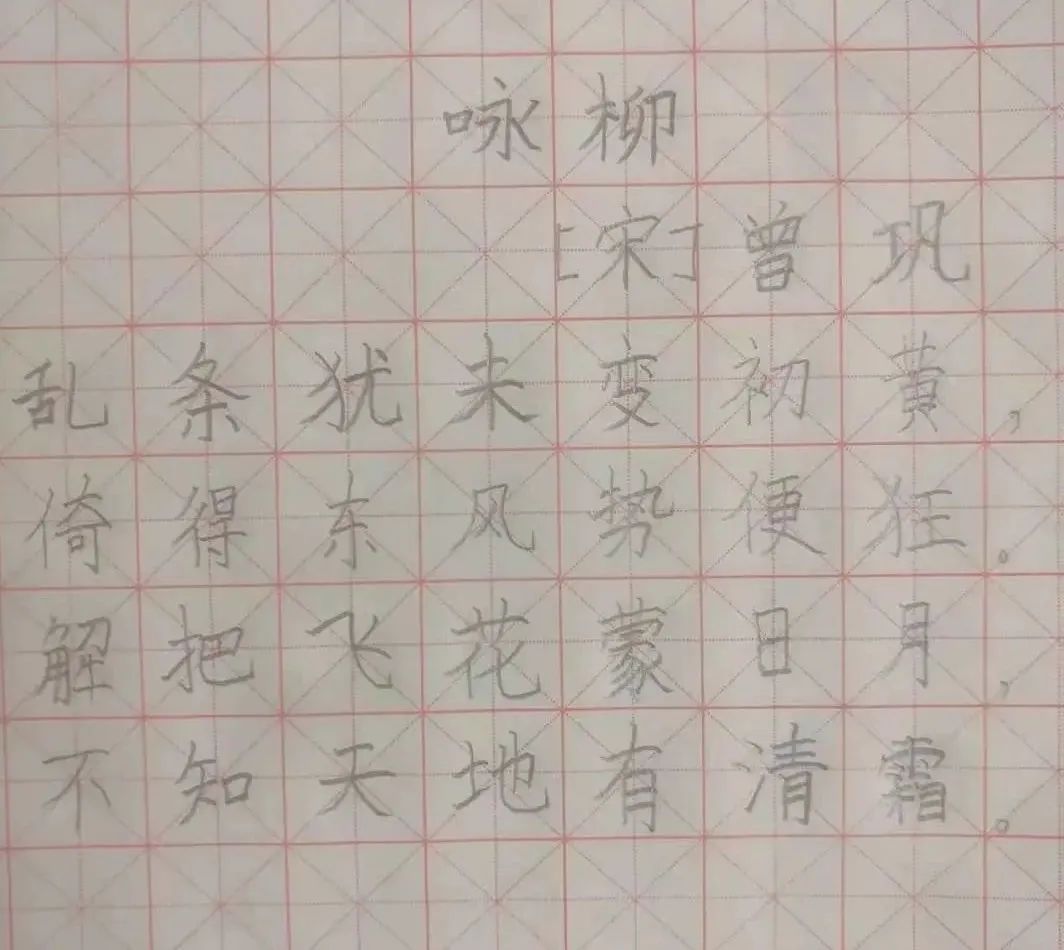 咏柳
[宋]曾巩
乱条犹未变初黄，
倚得东风势便狂。
解把飞花蒙日月，
不知天地有清霜。